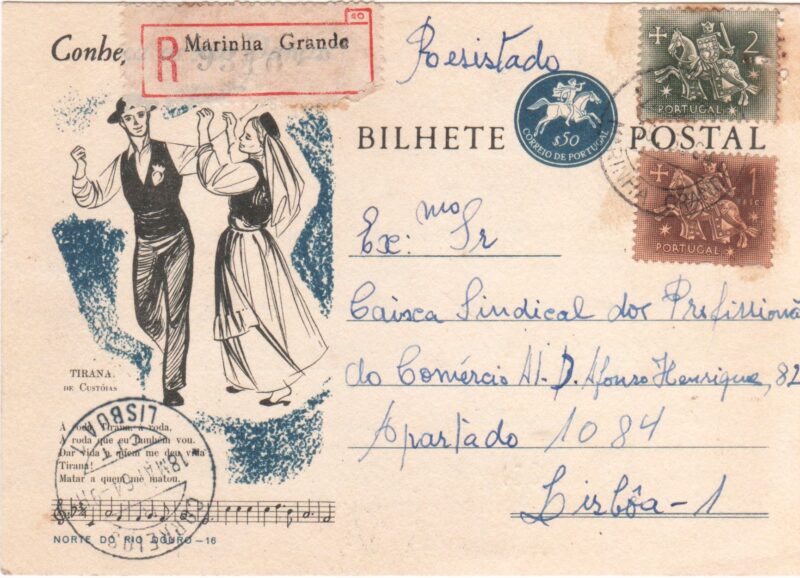 Conhe
R
Marinha Grande
Resistado
2
PORTUGAL
BILHETE POSTAL
$50
CORREIO DE PORTUGAL
MARINHA GRANDE
1
PORTUGAL
Ex: mo Sr
Caixa Sindical dos Profissioná
do Comércio Al. D. Afonso Henrique, 82
Apartado 1084
Lisbôa-1
TIRANA
DE CUSTÓIAS
À roda Tirana, à roda,
À roda que eu também vou.
Dar vida a quem me deu vida
Tirana!
Matar a quem me matou.
LISBOA
18 MAI
CORREIOS
NORTE DO RIO DOURO—16